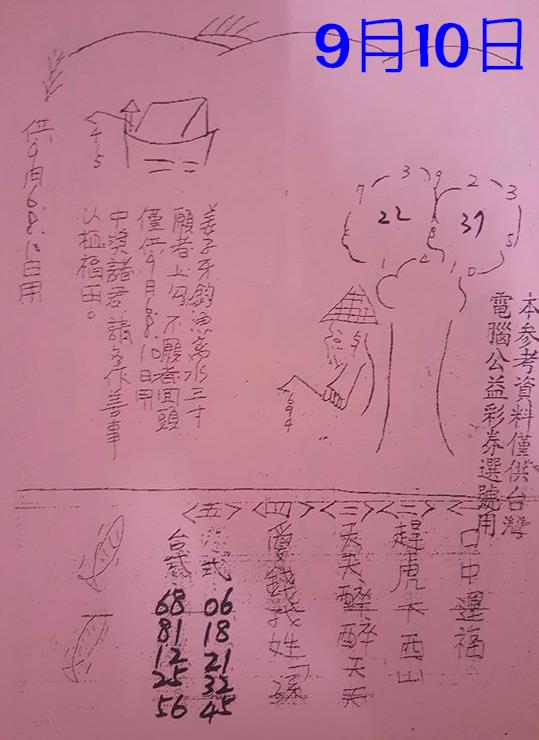 9月10日
本参考資料僅供台灣
電腦公益彩券選號用
7 3 9 2 3
22
37
5
694
45
姜子牙釣魚离水三寸
願者上勾不願者回頭
僅供9月6.8.10日用
中獎諸君請多作善事
以植福田。
供9月6.8.10日用
<二>趕虎下西山
<三>天天醉酒天天
<四>愛錢找姓「孫
<五>
06
18
21
32
45
台式
68
81
12
25
56